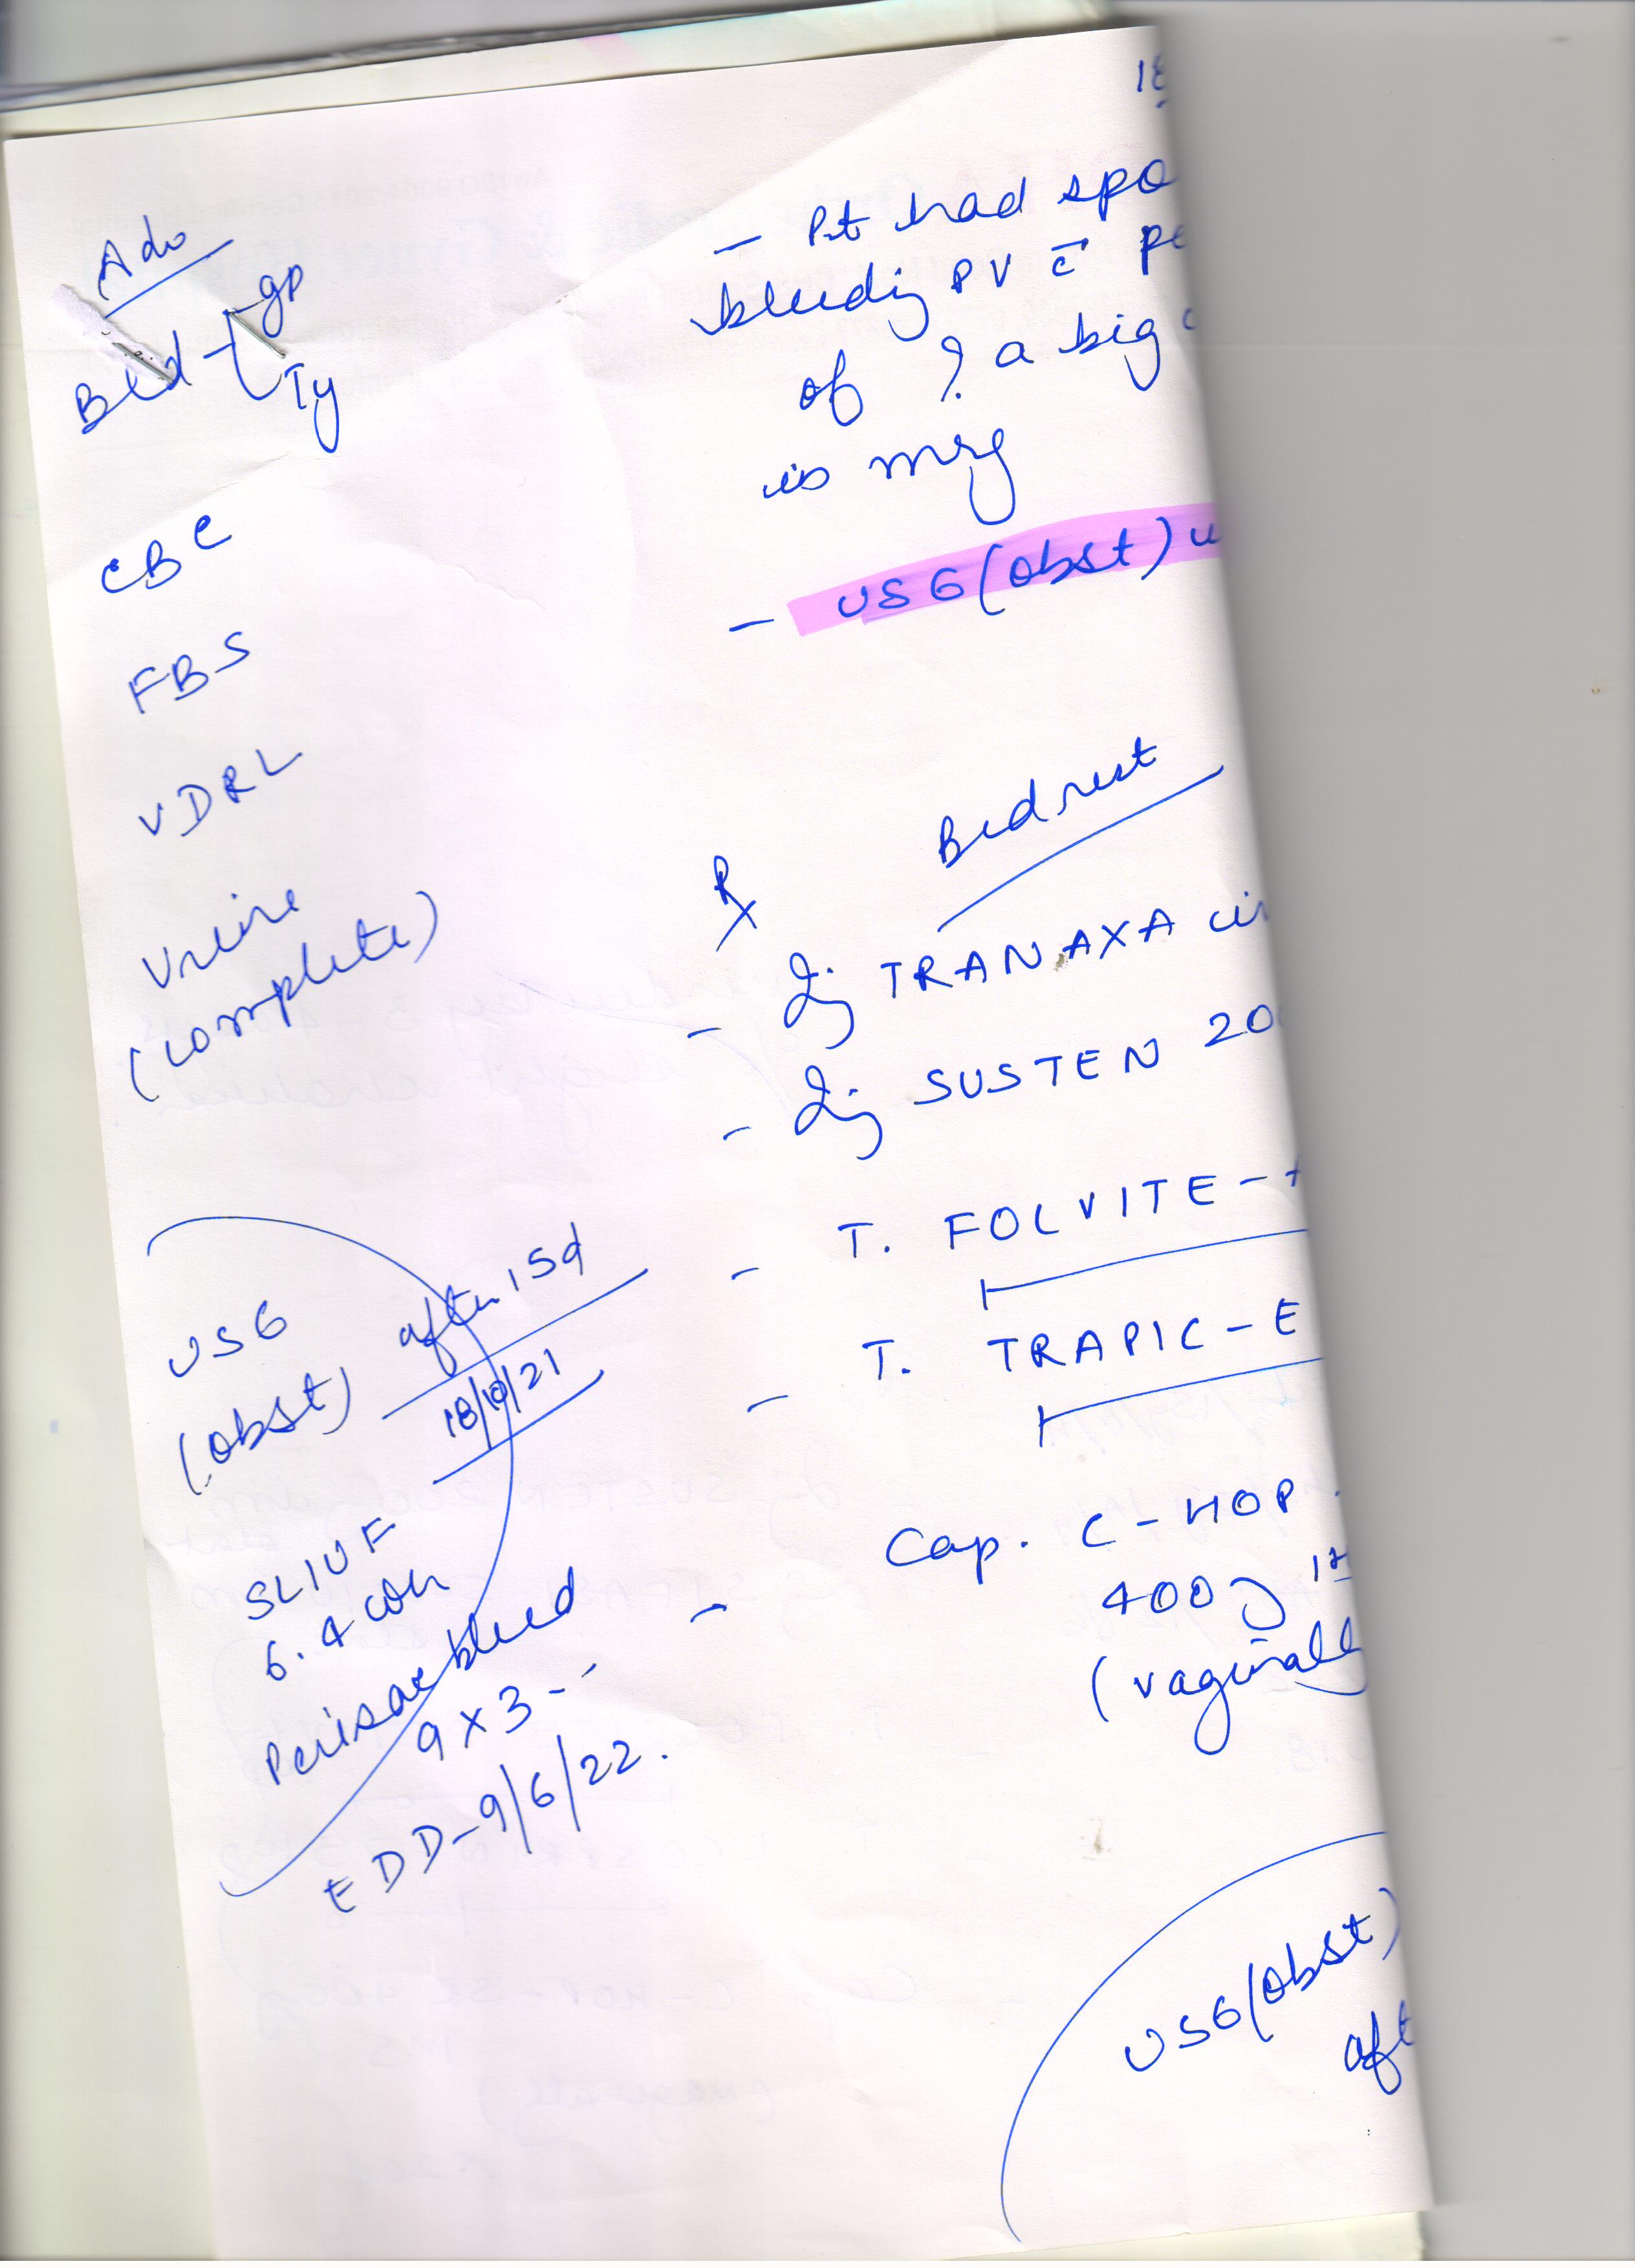 18
Adv
Bld - gp
Ty
CBC
FBS
VDRL
Urine
(complete)
USG
(obst) after 15d
18/10/21
SLIUF
6.4 wk
Perisac bleed
9 x 3
EDD - 9/6/22.
- Pt had spo
bleeding PV c̄ pa
of ? a big
is
- USG (obst) u
Bed rest
Rx
- Inj TRANAXA
- Inj SUSTEN 20
- T. FOLVITE -
- T. TRAPIC - E
- Cap. C - HOP
400
(vaginall
USG (obst)
aft